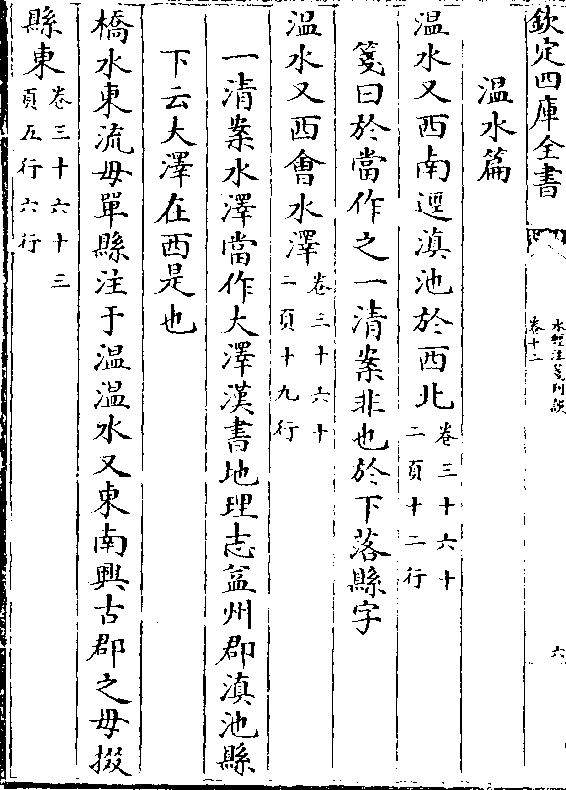 欽定四庫全書
水經注箋刊誤
卷十二
六
溫水篇
溫水又西南逕滇池於西北卷三十六十二頁十二行
箋曰於當作之一清案非也於下落縣字
溫水又西會水澤卷三十六十二頁十九行
一清案水澤當作大澤漢書地理志益州郡滇池縣
下云大澤在西是也
橋水東流毋單縣注于溫溫水又東南興古郡之毋掇
縣東卷三十六十三頁五行六行